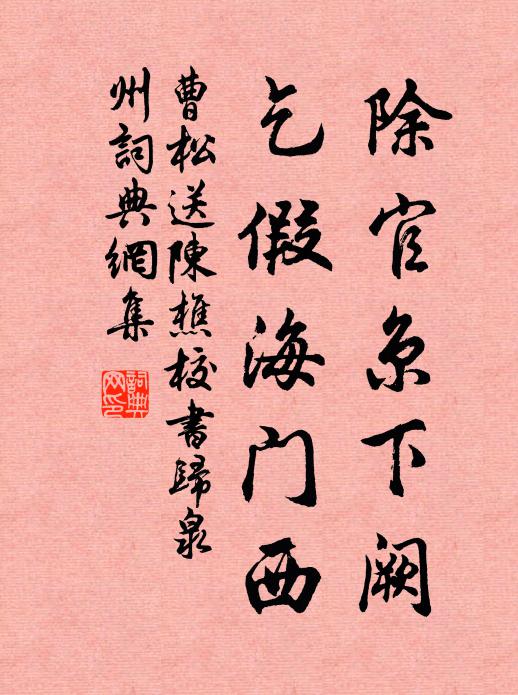 除官京下阙
乞假海门西
曹松送陳樵校書歸泉
州詞典網集
詞典
网印